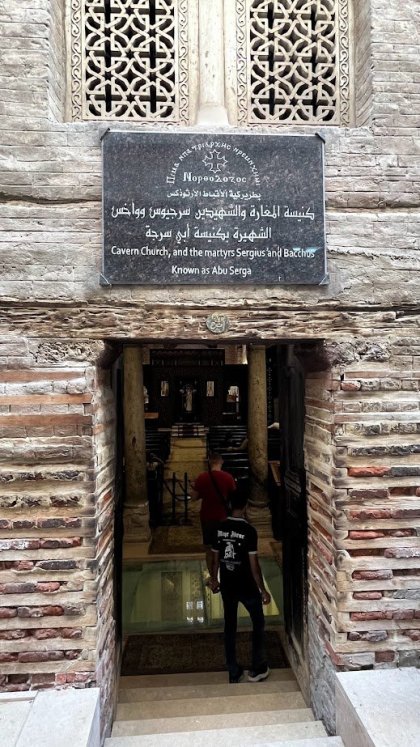 Ⲛⲟⲣⲑⲟⲇⲟⲝⲟⲥ
بطريركية الأقباط الأرثوذكس
كنيسة المغارة والشهيدين سرجيوس وواخس
الشهيرة بكنيسة أبي سرجة
Cavern Church, and the martyrs Sergius and Bacchus
Known as Abu Serga